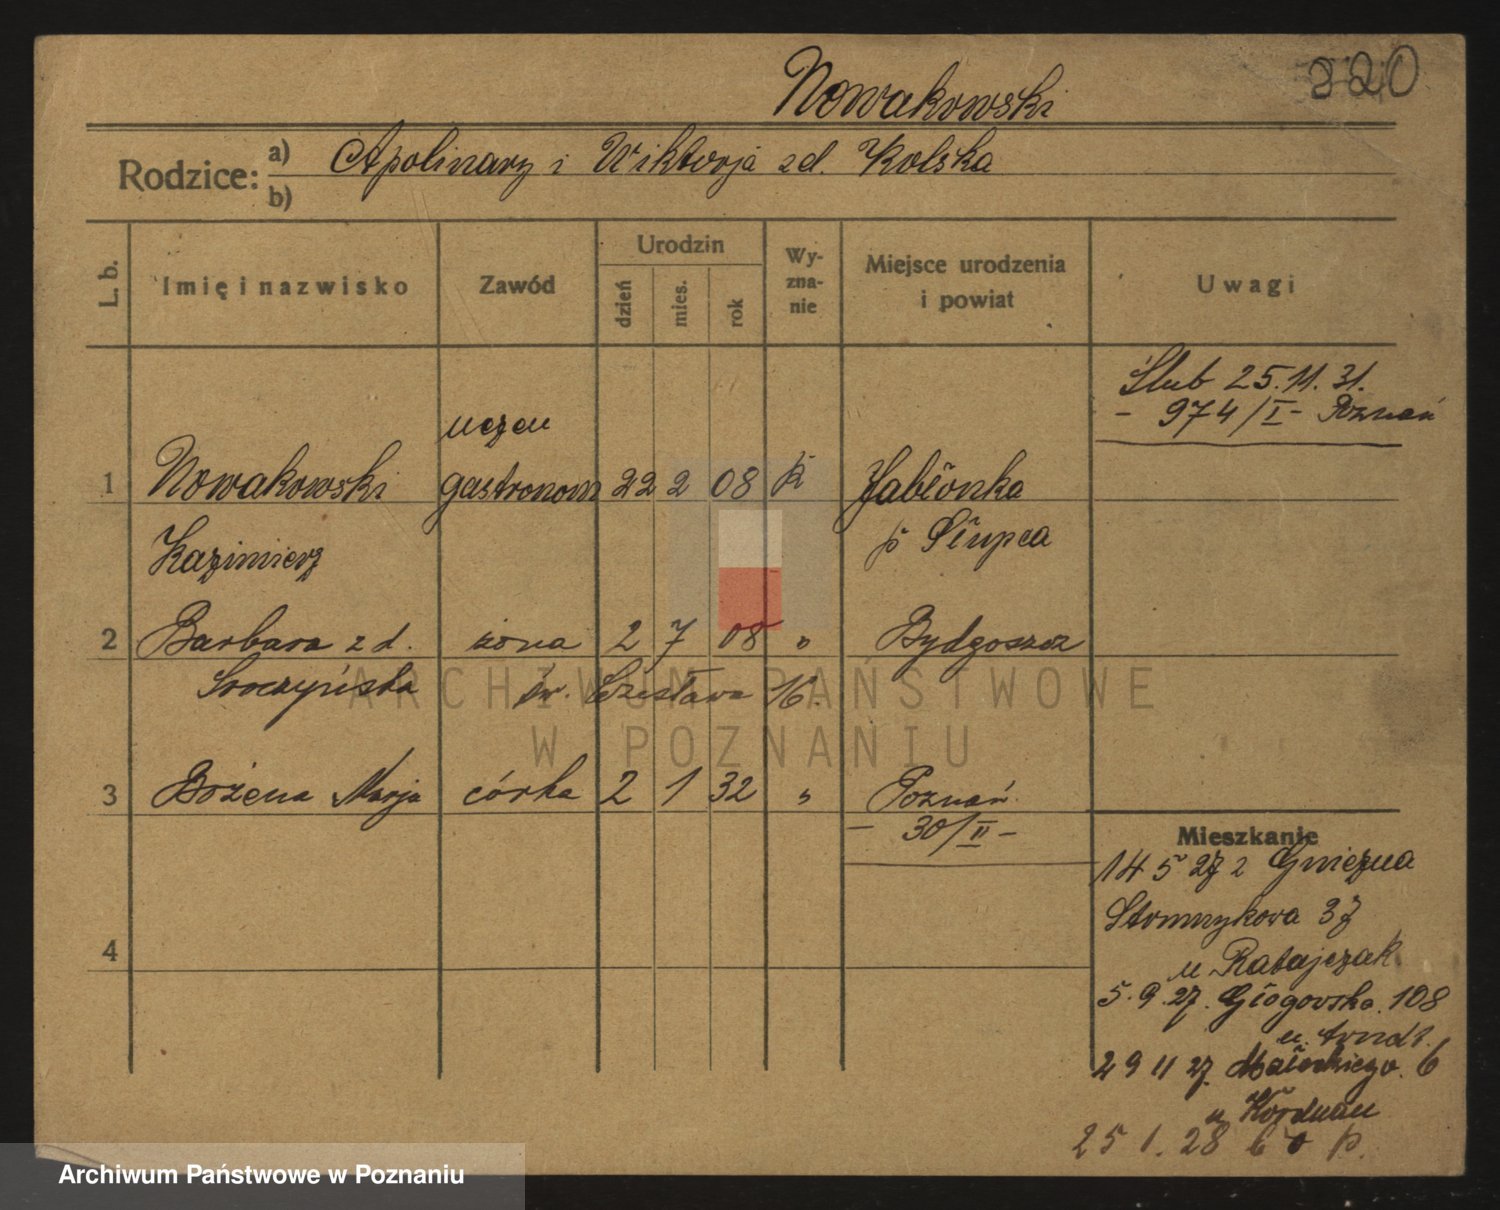 Nowakowski
320
Rodzice: a) Apolinary i Wiktorja zd. Kolska
b)
L. b. Imię i nazwisko Zawód Urodzin dzień mies. rok Wyznanie Miejsce urodzenia i powiat Uwagi
Ślub 25.11.31.
- 974/I - Poznań
uczeń
1 Nowakowski gastronom 22 2 08 k Jabłonka
Kazimierz p Słupca
2 Barbara z d. żona 2 7 08 " Bydgoszcz
Sroczyńska św. Czesława 16.
3 Bożena Marja córka 2 1 32 " Poznań
- 30/II -
4
Mieszkanie
14 5 27 z Gniezna
Strumykowa 37
u Ratajczak
5.9.27. Głogowska 108
u. Arndt.
29 11 27. Małeckiego. 6
u Kordman
25 1. 28 6 p.
ARCHIWUM PAŃSTWOWE
W POZNANIU
Archiwum Państwowe w Poznaniu